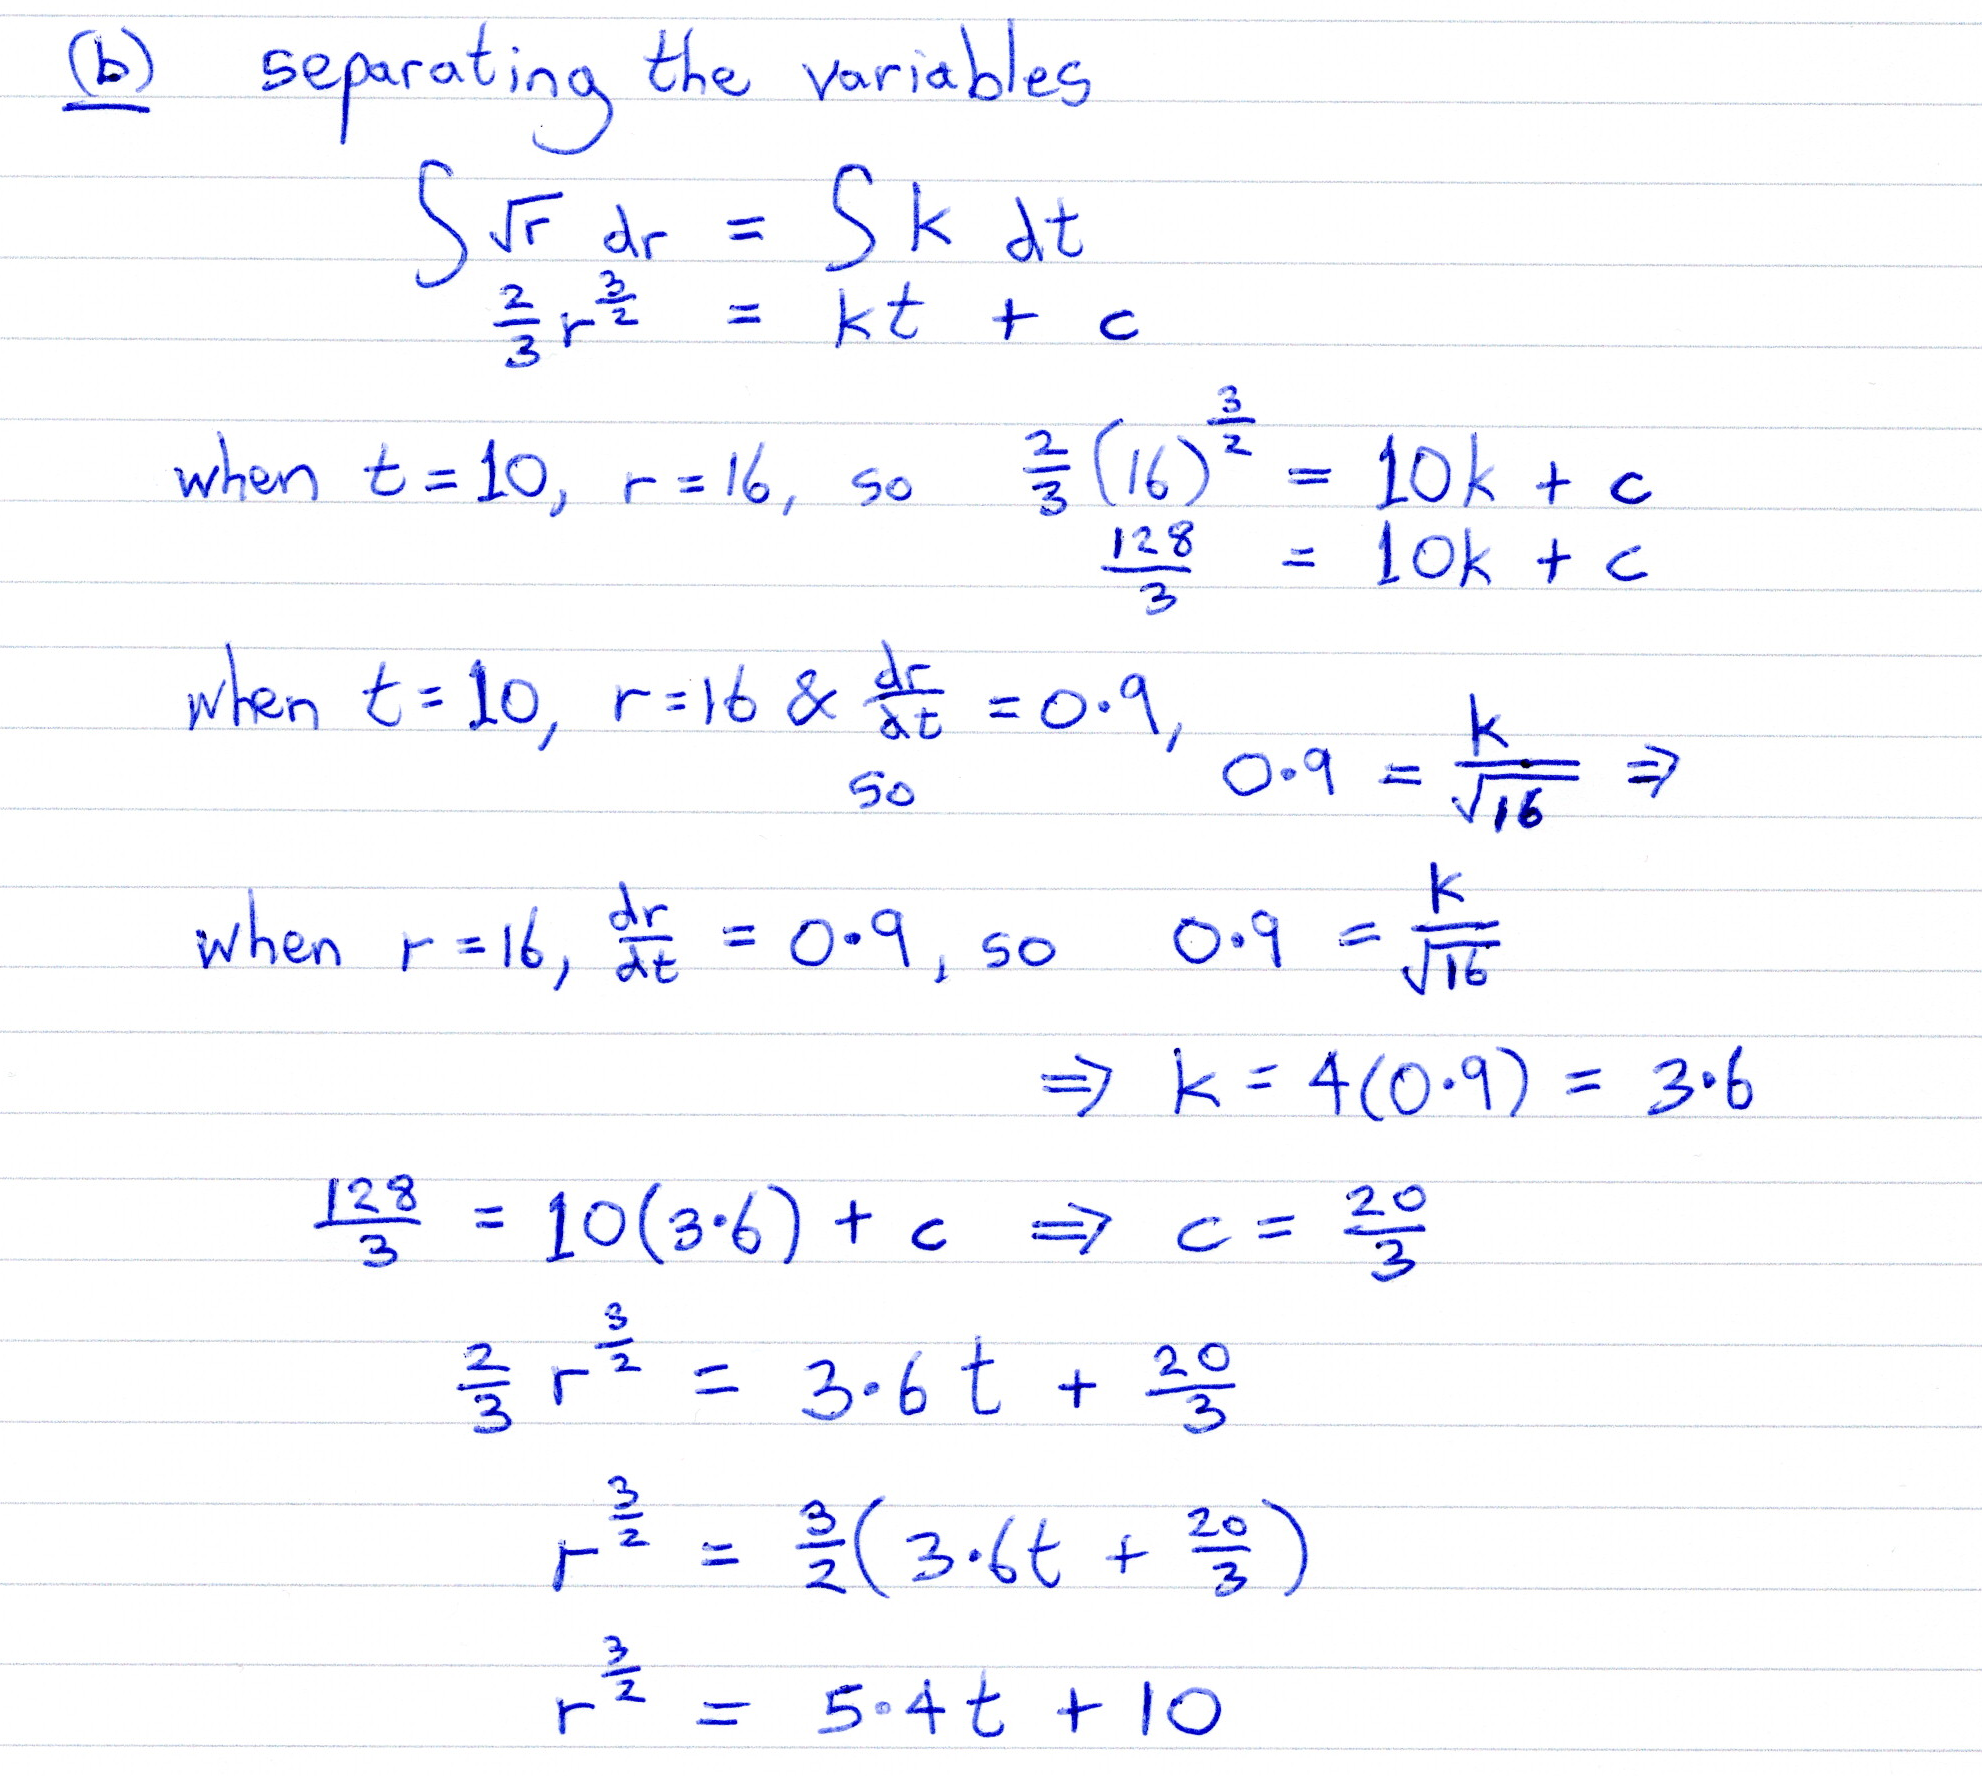 (b) separating the variables
∫ √r dr = ∫ k dt
2/3 r^(3/2) = kt + c
when t = 10, r = 16, so 2/3 (16)^(3/2) = 10k + c
128/3 = 10k + c
when t = 10, r = 16 & dr/dt = 0·9,
so 0·9 = k/√16 ⇒
when r = 16, dr/dt = 0·9, so 0·9 = k/√16
⇒ k = 4(0·9) = 3·6
128/3 = 10(3·6) + c ⇒ c = 20/3
2/3 r^(3/2) = 3·6t + 20/3
r^(3/2) = 3/2 (3·6t + 20/3)
r^(3/2) = 5·4t + 10